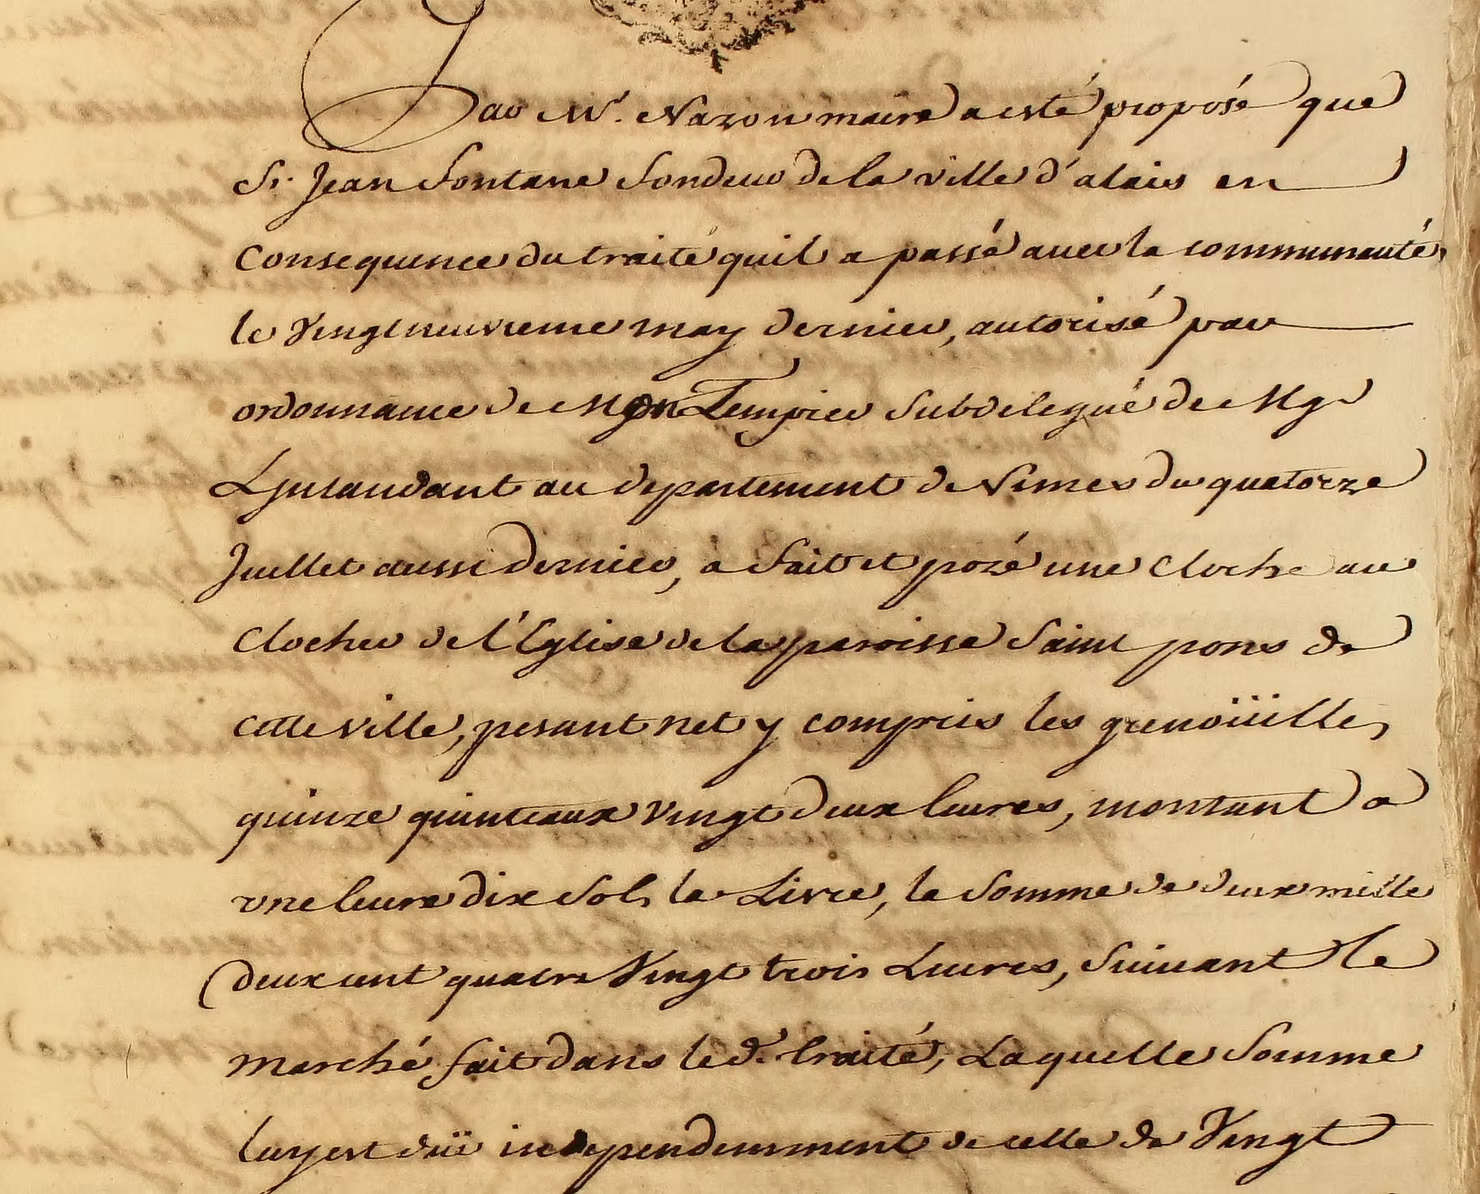 Par Mr. Nazon maire a esté proposé que
Sr. Jean Fontane fondeur de la ville d'alais en
Consequence du traité quil a passé avec la communauté,
le Vingt neuvieme may dernier, autorisé par
ordonnance de Tempier Subdelegué de Mgr
L'Jntandant au departement de Nimes du quatorze
Juillet aussi dernier, a fait et pozé une Cloche au
Clocher de l'Eglise de la parroisse Saint pons de
cette ville, pesant net y compris les grenoüille,
quinze quinteaux Vingt deux livres, montant a
vne livre dix Sols la Livre, la Somme de deux mille
deux cent quatre Vingt trois Livres, Suivant le
marché fait dans le d. traité, Laquelle Somme
luy est düe independemment de celle de Vingt